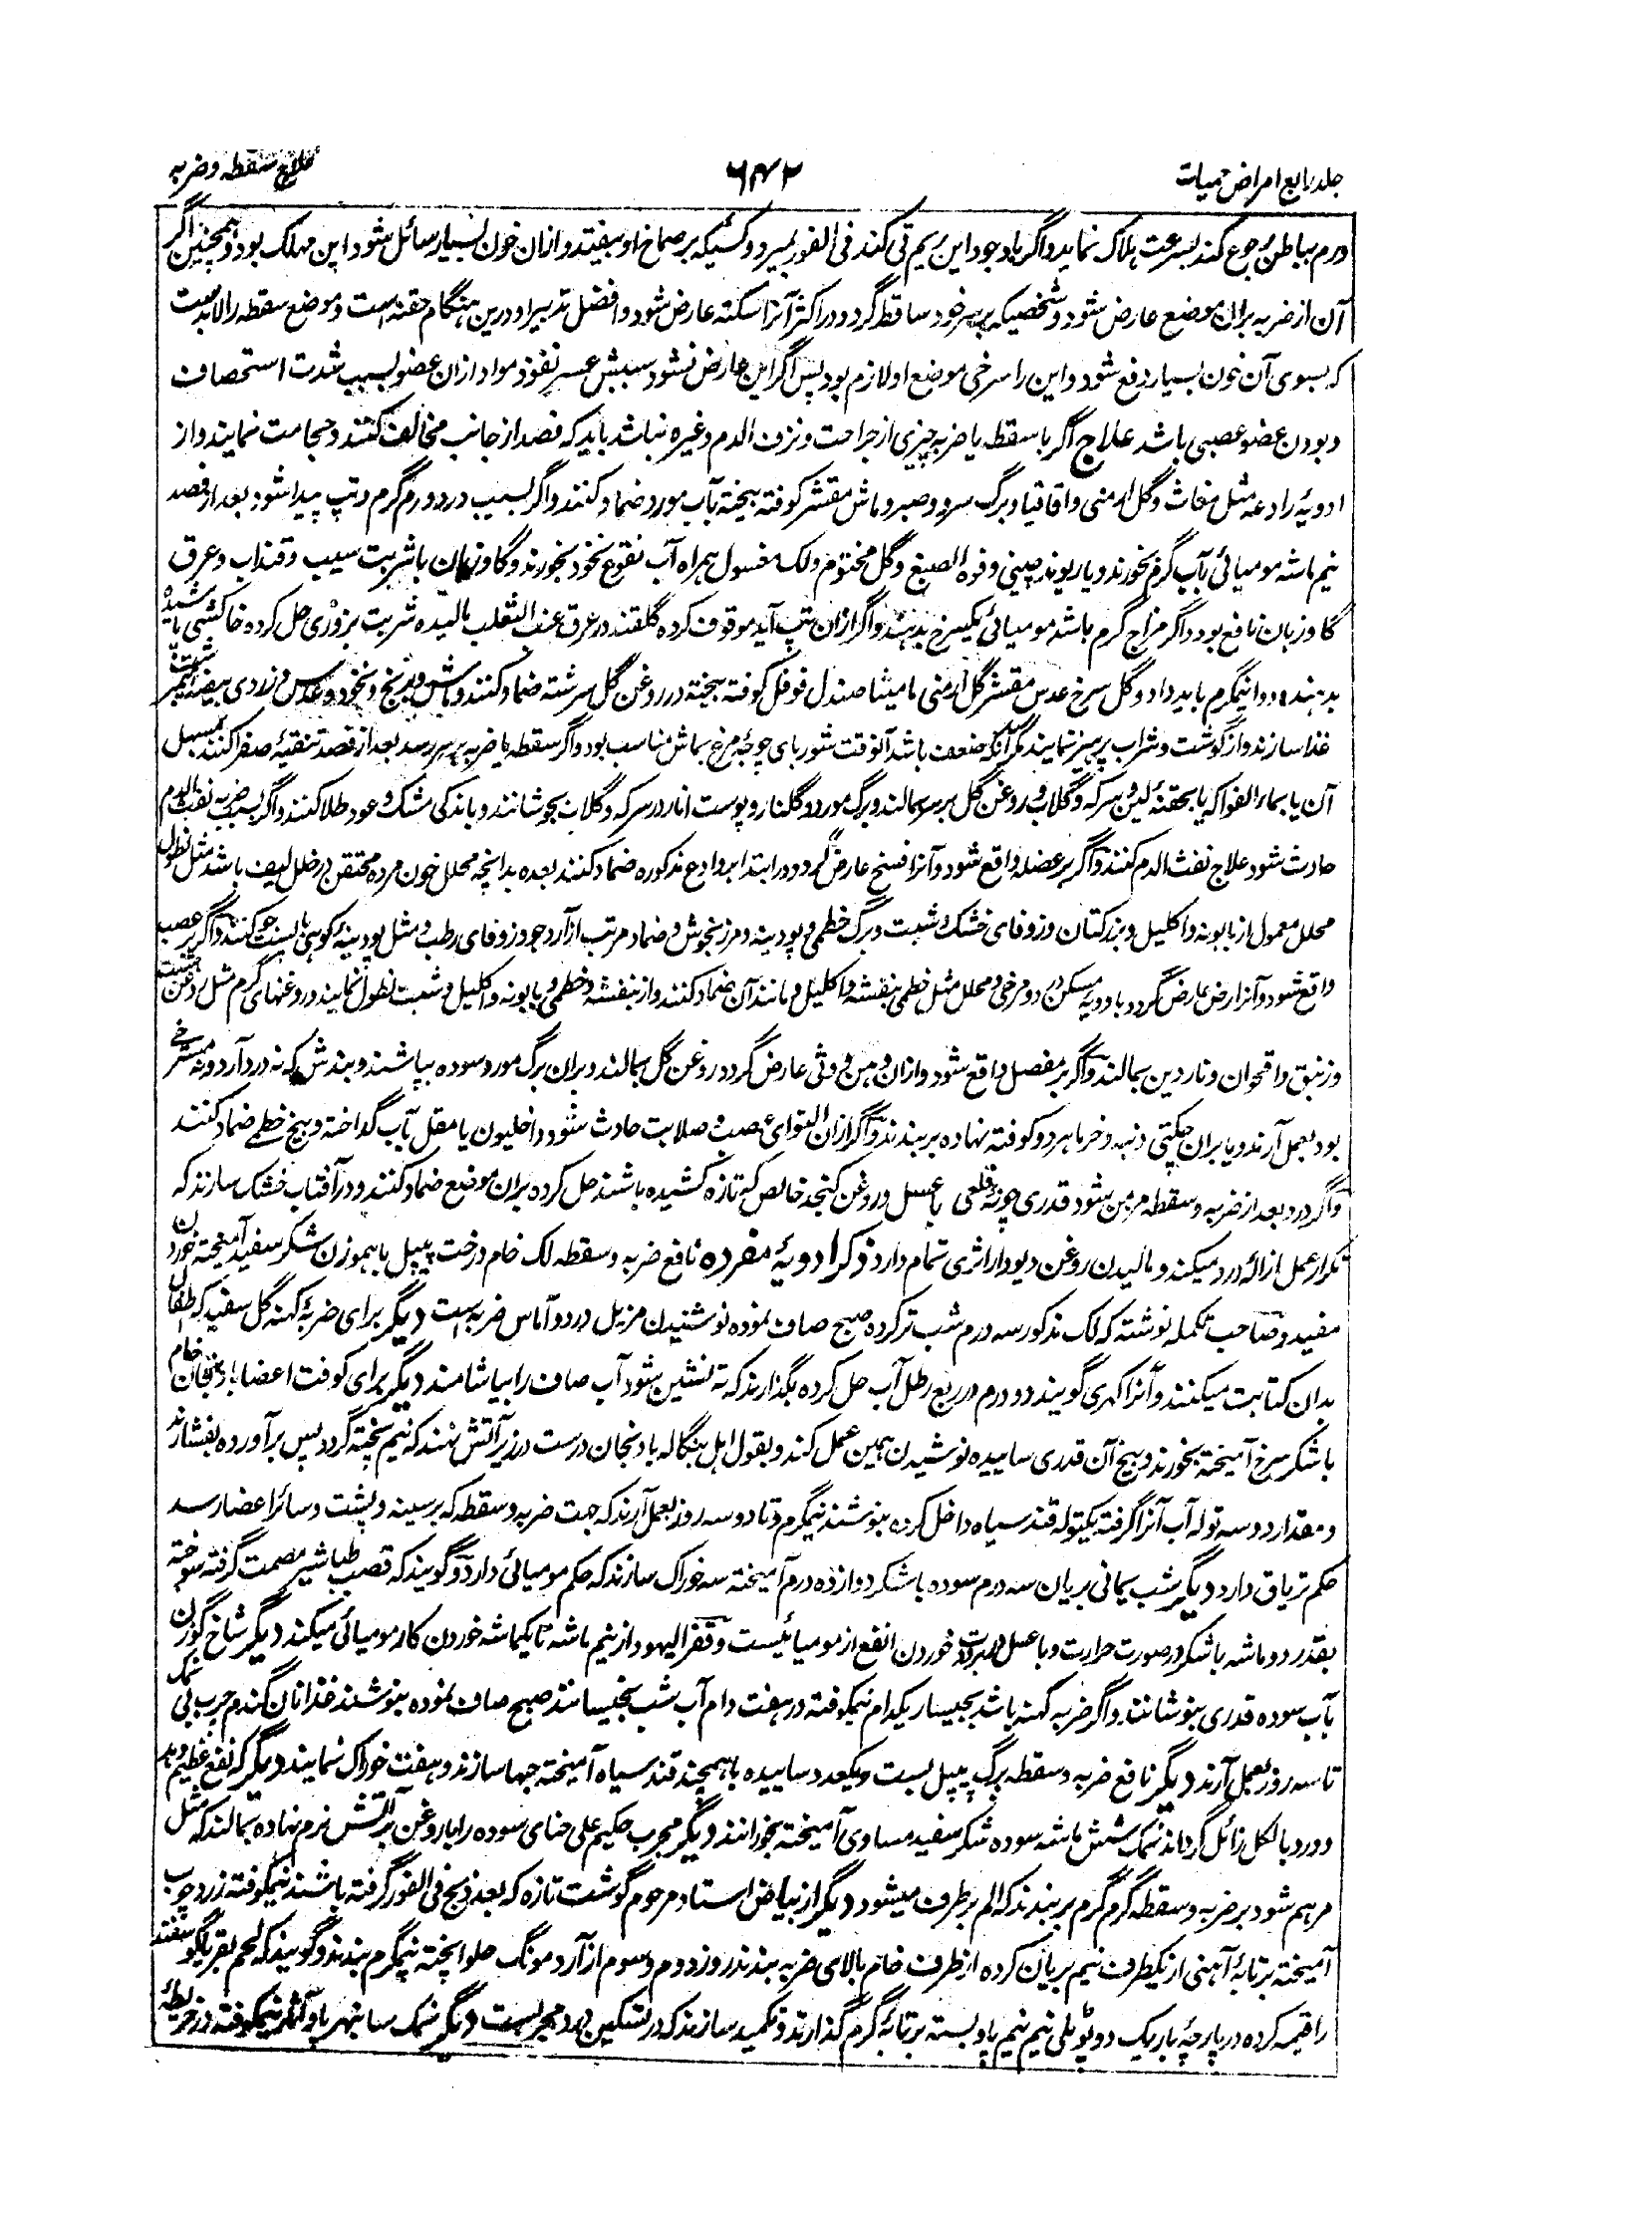 جلد رابع امراض حمیات
۶۴۲
علاج سقطه و ضربه
ورم بباطن رجوع کند بسرعت هلاک نماید و اگر باوجود این ریم قی کند فی الفور بمیرد و کسیکه بر صماخ او بیفتد و ازان خون بسیار سائل شود این مهلک بود و همچنین اگر
آن از ضربه بران موضع عارض شود و شخصیکه بر سر خود ساقط گردد در اکثر آنرا سکته عارض شود و افضل تدبیر او درین هنگام حقنه است و موضع سقطه را لابد ست
که بسوی آن خون بسیار دفع شود و این را سرخی موضع او لازم بود پس اگر این عارض نشود سببش عسر نفوذ مواد ازان عضو بسبب شدت استحصاف
و بودن عضو عصبی باشد علاج اگر با سقطه یا ضربه چیزی از جراحت و نزف الدم وغیره نباشد باید که فصد از جانب مخالف کنند و حجامت نمایند و از
ادویهٔ رادعه مثل مغاث و گل ارمنی و اقاقیا و برگ سرو و صبر و ماش مقشر کوفته بیخته بآب مورد ضماد کنند و اگر بسبب درد ورم گرم و تپ پیدا شود بعد از فصد
نیم ماشه مومیائی بآب گرم بخورند و یا ریوند چینی و فوه الصبغ و گل مختوم و لک مغسول همراه آب نقوع نخود بخورند و گاوزبان با شربت سیب و قنداب و عرق
گاوزبان نافع بود و اگر مزاج گرم باشد مومیائی یکسرخ بدهند و اگر ازان تپ آید موقوف کرده گلقند در عرق عنب الثعلب مالیده شربت بزوری حل کرده خاکشی پاشیده
بدهند و دوا نیمگرم باید داد و گل سرخ عدس مقشر گل ارمنی مامیثا صندل فوفل کوفته بیخته در روغن گل سرشته ضماد کنند و ماش و برنج و نخود و عدس و زردی بیضه نیمبرشت
غذا سازند و از گوشت و شراب پرهیز نمایند مگر آنکه ضعف باشد آنوقت شوربای چوجهٔ مرغ بماش مناسب بود و اگر سقطه یا ضربه بر سر رسد بعد از فصد تنقیهٔ صفرا کنند بمسهل
آن یا بماء الفواکه یا بحقنهٔ لین و سرکه و گلاب و روغن گل بر سر بمالند و برگ مورد و گلنار و پوست انار در سرکه و گلاب بجوشانند و باندکی مشک و عود طلا کنند و اگر بسبب ضربه نفث الدم
حادث شود علاج نفث الدم کنند و اگر بر عضله واقع شود و آنرا فسخ عارض گردد در ابتدا بروادع مذکوره ضماد کنند بعده بدانچه محلل خون مرده محتقن در خلل لیف باشد مثل نطول
محلل معمول از بابونه و اکلیل و بزرکتان و زوفای خشک و شبت و برگ خطمی و پودینه و مرزنجوش و ضماد مرتب از آرد جو و زوفای رطب و مثل پودینهٔ کوهی با پست جو کنند و اگر بر عصب
واقع شود و آنرا رض عارض گردد بادویه مسکن درد و مرخی و محلل مثل خطمی بنفشه و اکلیل و مانند آن ضماد کنند و از بنفشه و خطمی و بابونه و اکلیل و شبت نطول نمایند و روغنهای گرم مثل روغن شبت
و زنبق و اقحوان و ناردین بمالند و اگر بر مفصل واقع شود و ازان وهن و وثی عارض گردد روغن گل بمالند و بران برگ مورد سوده بپاشند و بندش که نه درد آرد و نه مسترخی
بود بعمل آرند و یا بران چکتی دنبه و خرما هر دو کوفته نهاده بربندند و اگر ازان التوای عصب و صلابت حادث شود داخلیون یا مقل بآب گداخته و بیخ خطمی ضماد کنند
و اگر درد بعد از ضربه و سقطه مزمن شود قدری چونهٔ قلعی با عسل و روغن کنجد خالص که تازه کشیده باشند حل کرده بران موضع ضماد کنند و در آفتاب خشک سازند که
تکرار عمل ازالهٔ درد میکند و مالیدن روغن دیودار اثری تمام دارد ذکر ادویهٔ مفرده نافع ضربه و سقطه لک خام درخت پیپل با هموزن شکر سفید آمیخته خوردن
مفید و صاحب تکمله نوشته که لک مذکور سه درم شب تر کرده صبح صاف نموده نوشیدن مزیل درد و آماس ضربه است دیگر برای ضربهٔ کهنه گل سفید که اطفال
بدان کتابت میکنند و آنرا کهری گویند دو درم در ربع رطل آب حل کرده بگذارند که ته نشین شود آب صاف را بیاشامند دیگر برای کوفت اعضا بادنجان خام
با شکر سرخ آمیخته بخورند و بیخ آن قدری ساییده نوشیدن همین عمل کند و بقول اهل بنگاله بادنجان درست در زیر آتش نهند که نیم پخته گردد پس برآورده بفشارند
و مقدار دو سه توله آب آنرا گرفته یکتوله قند سیاه داخل کرده بنوشند نیمگرم و تا دو سه روز بعمل آرند که جهت ضربه و سقطه که بر سینه و پشت و سائر اعضا رسد
حکم تریاق دارد دیگر شب یمانی بریان سه درم سوده با شکر دوازده درم آمیخته سه خوراک سازند که حکم مومیائی دارد و گویند که قصب طباشیر مصمت گرفته سوخته
بقدر دو ماشه با شکر در صورت حرارت و با عسل در برودت خوردن انفع از مومیائیست و قفر الیهود از نیم ماشه تا یکماشه خوردن کار مومیائی میکند دیگر شاخ گوزن
بآب سوده قدری بنوشانند و اگر ضربه کهنه باشد بجیسار یکدام نیمکوفته در هفت دام آب شب بخیسانند صبح صاف نموده بنوشند غذا نان گندم چرب بی نمک
تا سه روز بعمل آرند دیگر نافع ضربه و سقطه برگ پیپل بست و یکعدد ساییده با همچند قند سیاه آمیخته حبها سازند و هفت خوراک نمایند دیگر که نفع عظیم دهد
و درد بالکل زائل گرداند نمک شش ماشه سوده شکر سفید مساوی آمیخته بخورانند دیگر مجرب حکیم علی حنای سوده را با روغن بر آتش نرم نهاده بمالند که مثل
مرهم شود بر ضربه و سقطه گرم گرم بربندند که الم برطرف میشود دیگر از بیاض استاد مرحوم گوشت تازه که بعد ذبح فی الفور گرفته باشند نیمکوفته زرد چوب
آمیخته بر تابهٔ آهنی از یکطرف نیم بریان کرده از طرف خام بالای ضربه بندند روز دوم و سوم از آرد مونگ حلوا پخته نیمگرم بندند و گویند که لحم بقر یا گوسفند
را قیمه کرده در پارچهٔ باریک دو پوٹلی نیم نیم پاو بسته بر تابهٔ گرم گذارند و تکمید سازند که در تسکین درد مجربست دیگر نمک سانبهر پاو آثار نیمکوفته در خریطهٔ